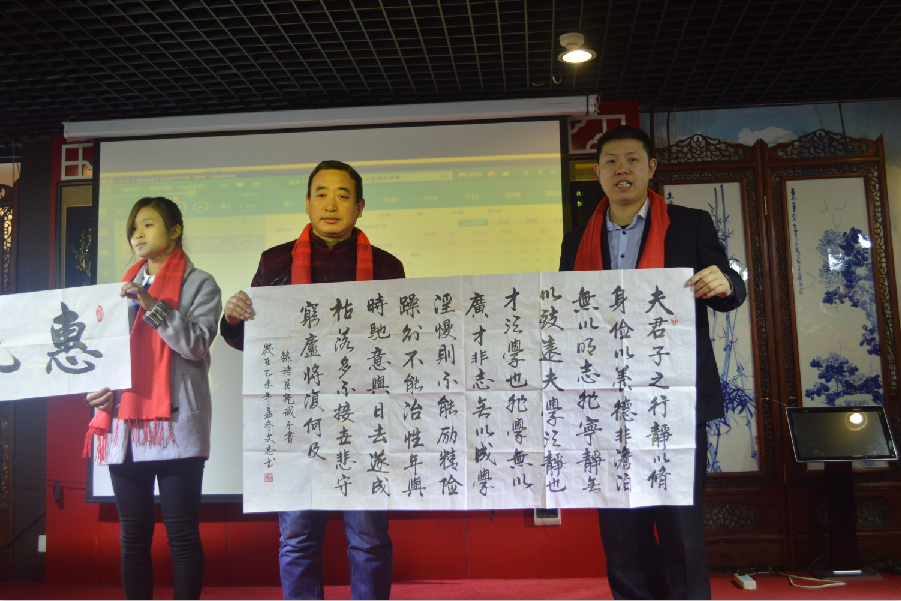 惠
夫君子之行靜以脩
身儉以養德非澹泊
無以明志非寧靜無
以致遠夫學須靜也
才須學也非學無以
廣才非志无以成學
淫慢則不能励精险
躁則不能治性年與
時馳意與日去遂成
枯落多不接世悲守
窮廬將復何及
錄诸葛亮誡子書
歲在乙未年孟冬文志书